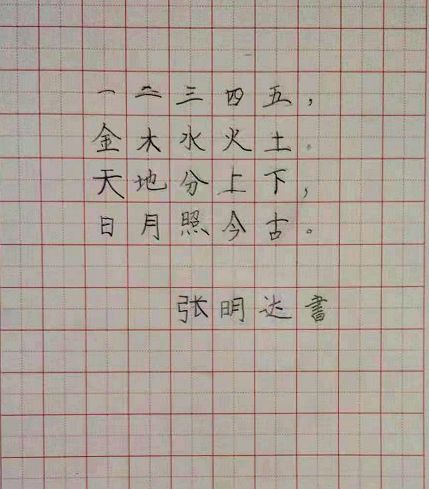 一二三四五，
金木水火土。
天地分上下，
日月照今古。
张明达書